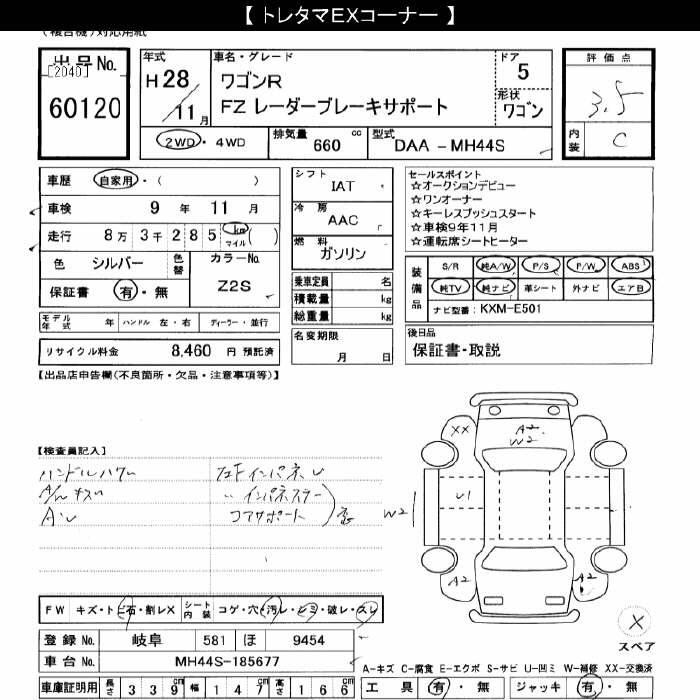 【 トレタマEXコーナー 】
(複合機)対応用紙
出品No.
[2040]
60120
年式
H28
11月
車名・グレード
ワゴンR
FZ レーダーブレーキサポート
ドア
5
形状
ワゴン
2WD・4WD
排気量
660
cc
型式
DAA - MH44S
評価点
3.5
内装
C
車歴
自家用・( )
車検
9 年 11 月
走行
8万3千285
km
マイル
( )
色
シルバー
色替
カラーNo.
Z2S
保証書
有・無
モデル年式
年
ハンドル
左・右
ディーラー・並行
リサイクル料金
8,460 円 預託済
シフト
IAT
冷房
AAC
燃料
ガソリン
乗車定員
名
積載量
kg
総重量
kg
名変期限
月 日
セールスポイント
☆オークションデビュー
☆ワンオーナー
☆キーレスプッシュスタート
☆車検9年11月
☆運転席シートヒーター
装備品
S/R
純A/W
P/S
P/W
ABS
純TV
純ナビ
革シート
外ナビ
エアB
ナビ型番: KXM-E501
後日品
保証書・取説
【出品店申告欄(不良箇所・欠品・注意事項等)】
【検査員記入】
A/W キズ
インパネステー
コアサポート
XX
A2
W2
U1
W2
A2
A2
X
スペア
FW
キズ・トビ石・割レX
シート内装
コゲ・穴・汚レ・シミ・破レ・スレ
登録 No.
岐阜
581
ほ
9454
車台 No.
MH44S-185677
車庫証明用
長さ
339
cm
幅
147
cm
高さ
166
cm
A-キズ C-腐食 E-エクボ S-サビ U-凹ミ W-補修 XX-交換済
工具
有・無
ジャッキ
有・無